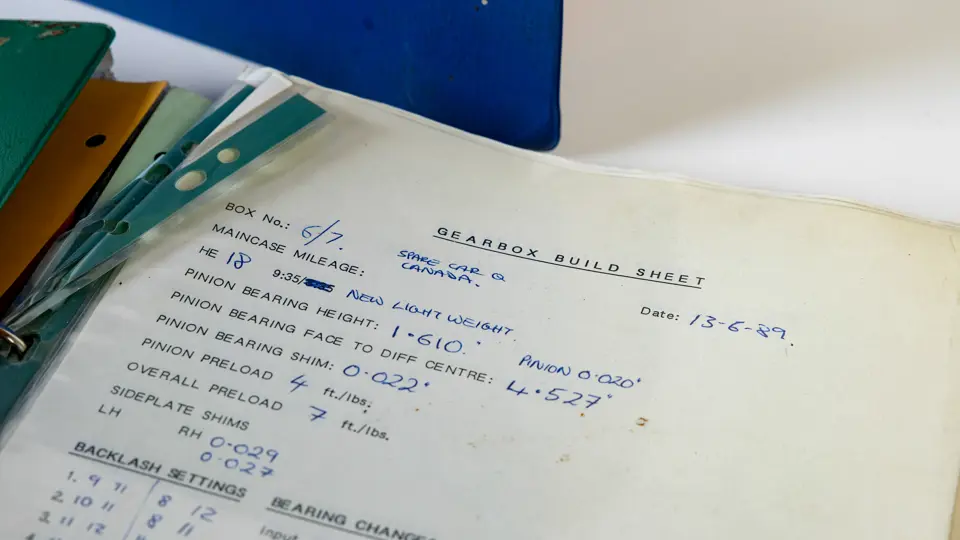 GEARBOX BUILD SHEET
BOX No.: 6/7.
Date: 13-6-89.
MAINCASE MILEAGE: SPARE CAR Q
CANADA.
HE 18 9:35/ NEW LIGHT WEIGHT
PINION BEARING HEIGHT: 1.610" PINION 0.020"
PINION BEARING FACE TO DIFF CENTRE: 4.527"
PINION BEARING SHIM: 0.022"
PINION PRELOAD 4 ft./lbs.
OVERALL PRELOAD 7 ft./lbs.
SIDEPLATE SHIMS
LH RH 0.029
0.027
BACKLASH SETTINGS BEARING CHANGE
1. 9 11 8 12
2. 10 11 8 11
3. 11 12
Input